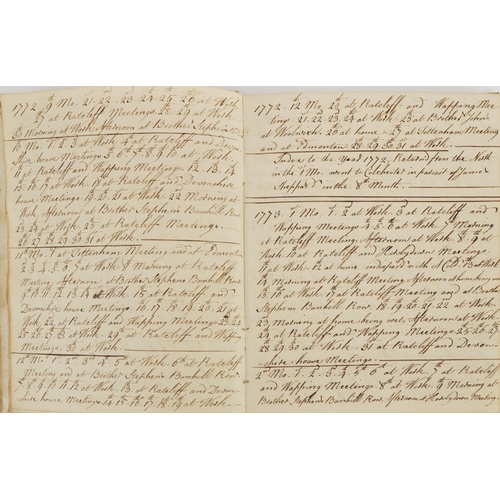 1772. 9 Mo. 21. 22. 23. 24. 25. 26 at Work
27 at Ratcliff Meetings 28. 29 at Work
30 Morning at Work Afternoon at Brother Stephens
10 Mo. 1. 2. 3 at Work 4 at Ratcliff and Devon
shire house Meetings 5. 6. 7. 8. 9. 10 at Work.
11 at Ratcliff and Wapping Meetings. 12. 13. 14.
15. 16. 17 at Work. 18 at Ratcliff and Devonshire
house Meetings. 19. 20. 21 at Work. 22 Morning at
Work, Afternoon at Brother Stephens Bunhill Row
23. 24 at Work. 25 at Ratcliff Meetings.
26. 27. 28. 29. 30. 31 at Work.
11 Mo. 1 at Tottenham Meeting and at Edmonton
2. 3. 4. 5. 6. 7 at Work 8 Morning at Ratcliff
Meeting Afternoon at Brother Stephens Bunhill Row
9. 10. 11. 12. 13. 14 at Work. 15 at Ratcliff and
Devonshire house Meetings 16. 17. 18. 19. 20. 21 at
Work, 22 at Ratcliff and Wapping Meetings 23. 24
25. 26. 27. 28 at Work 29 at Ratcliff and Wapping
Meetings. 30 at Work.
12 Mo. 1. 2. 3. 4. 5 at Work. 6 at Ratcliff
Meeting and at Brother Stephens Bunhill Row
7. 8. 9. 10. 11. 12 at Work. 13 at Ratcliff and Devon-
shire house Meetings. 14. 15. 16. 17. 18. 19 at Work.
1772. 12 Mo. 20 at Ratcliff and Wapping Mee
tings 21. 22. 23. 24 at Work 25 at Brother John's
at Woolwich 26 at home. 27 at Tottenham Meeting
and at Edmonton 28. 29. 30. 31 at Work.
Index to the Year 1772. Returned from the North
in the 1 Mo. went to Colchester in pursuit of James
Sheppard in the 8 Month.
1773. 1 Mo. 1. 2 at Work. 3 at Ratcliff and
Wapping Meetings 4. 5. 6 at Work 7 Morning
at Ratcliff Meeting, Afternoon at Work 8. 9 at
Work. 10 at Ratcliff and Horslydown Meetings
11 at Work. 12 at home indisposed with a Cold. 13 at Work
14 Morning at Ratcliff Meeting Afternoon at home
15. 16 at Work 17 at Ratcliff Meeting and at Brother
Stephens Bunhill Row 18. 19. 20. 21. 22 at Work
23 Morning at home being wet, Afternoon at Work
24 at Ratcliff and Wapping Meetings. 25. 26. 27
28. 29. 30 at Work. 31 at Ratcliff and Devon-
shire house Meetings.
2 Mo. 1. 2. 3. 4. 5. 6 at Work. 7 at Ratcliff
and Wapping Meetings. 8 at Work. 9 Morning at
Brother Stephens Bunhill Row Afternoon at Horslydown Meeting.